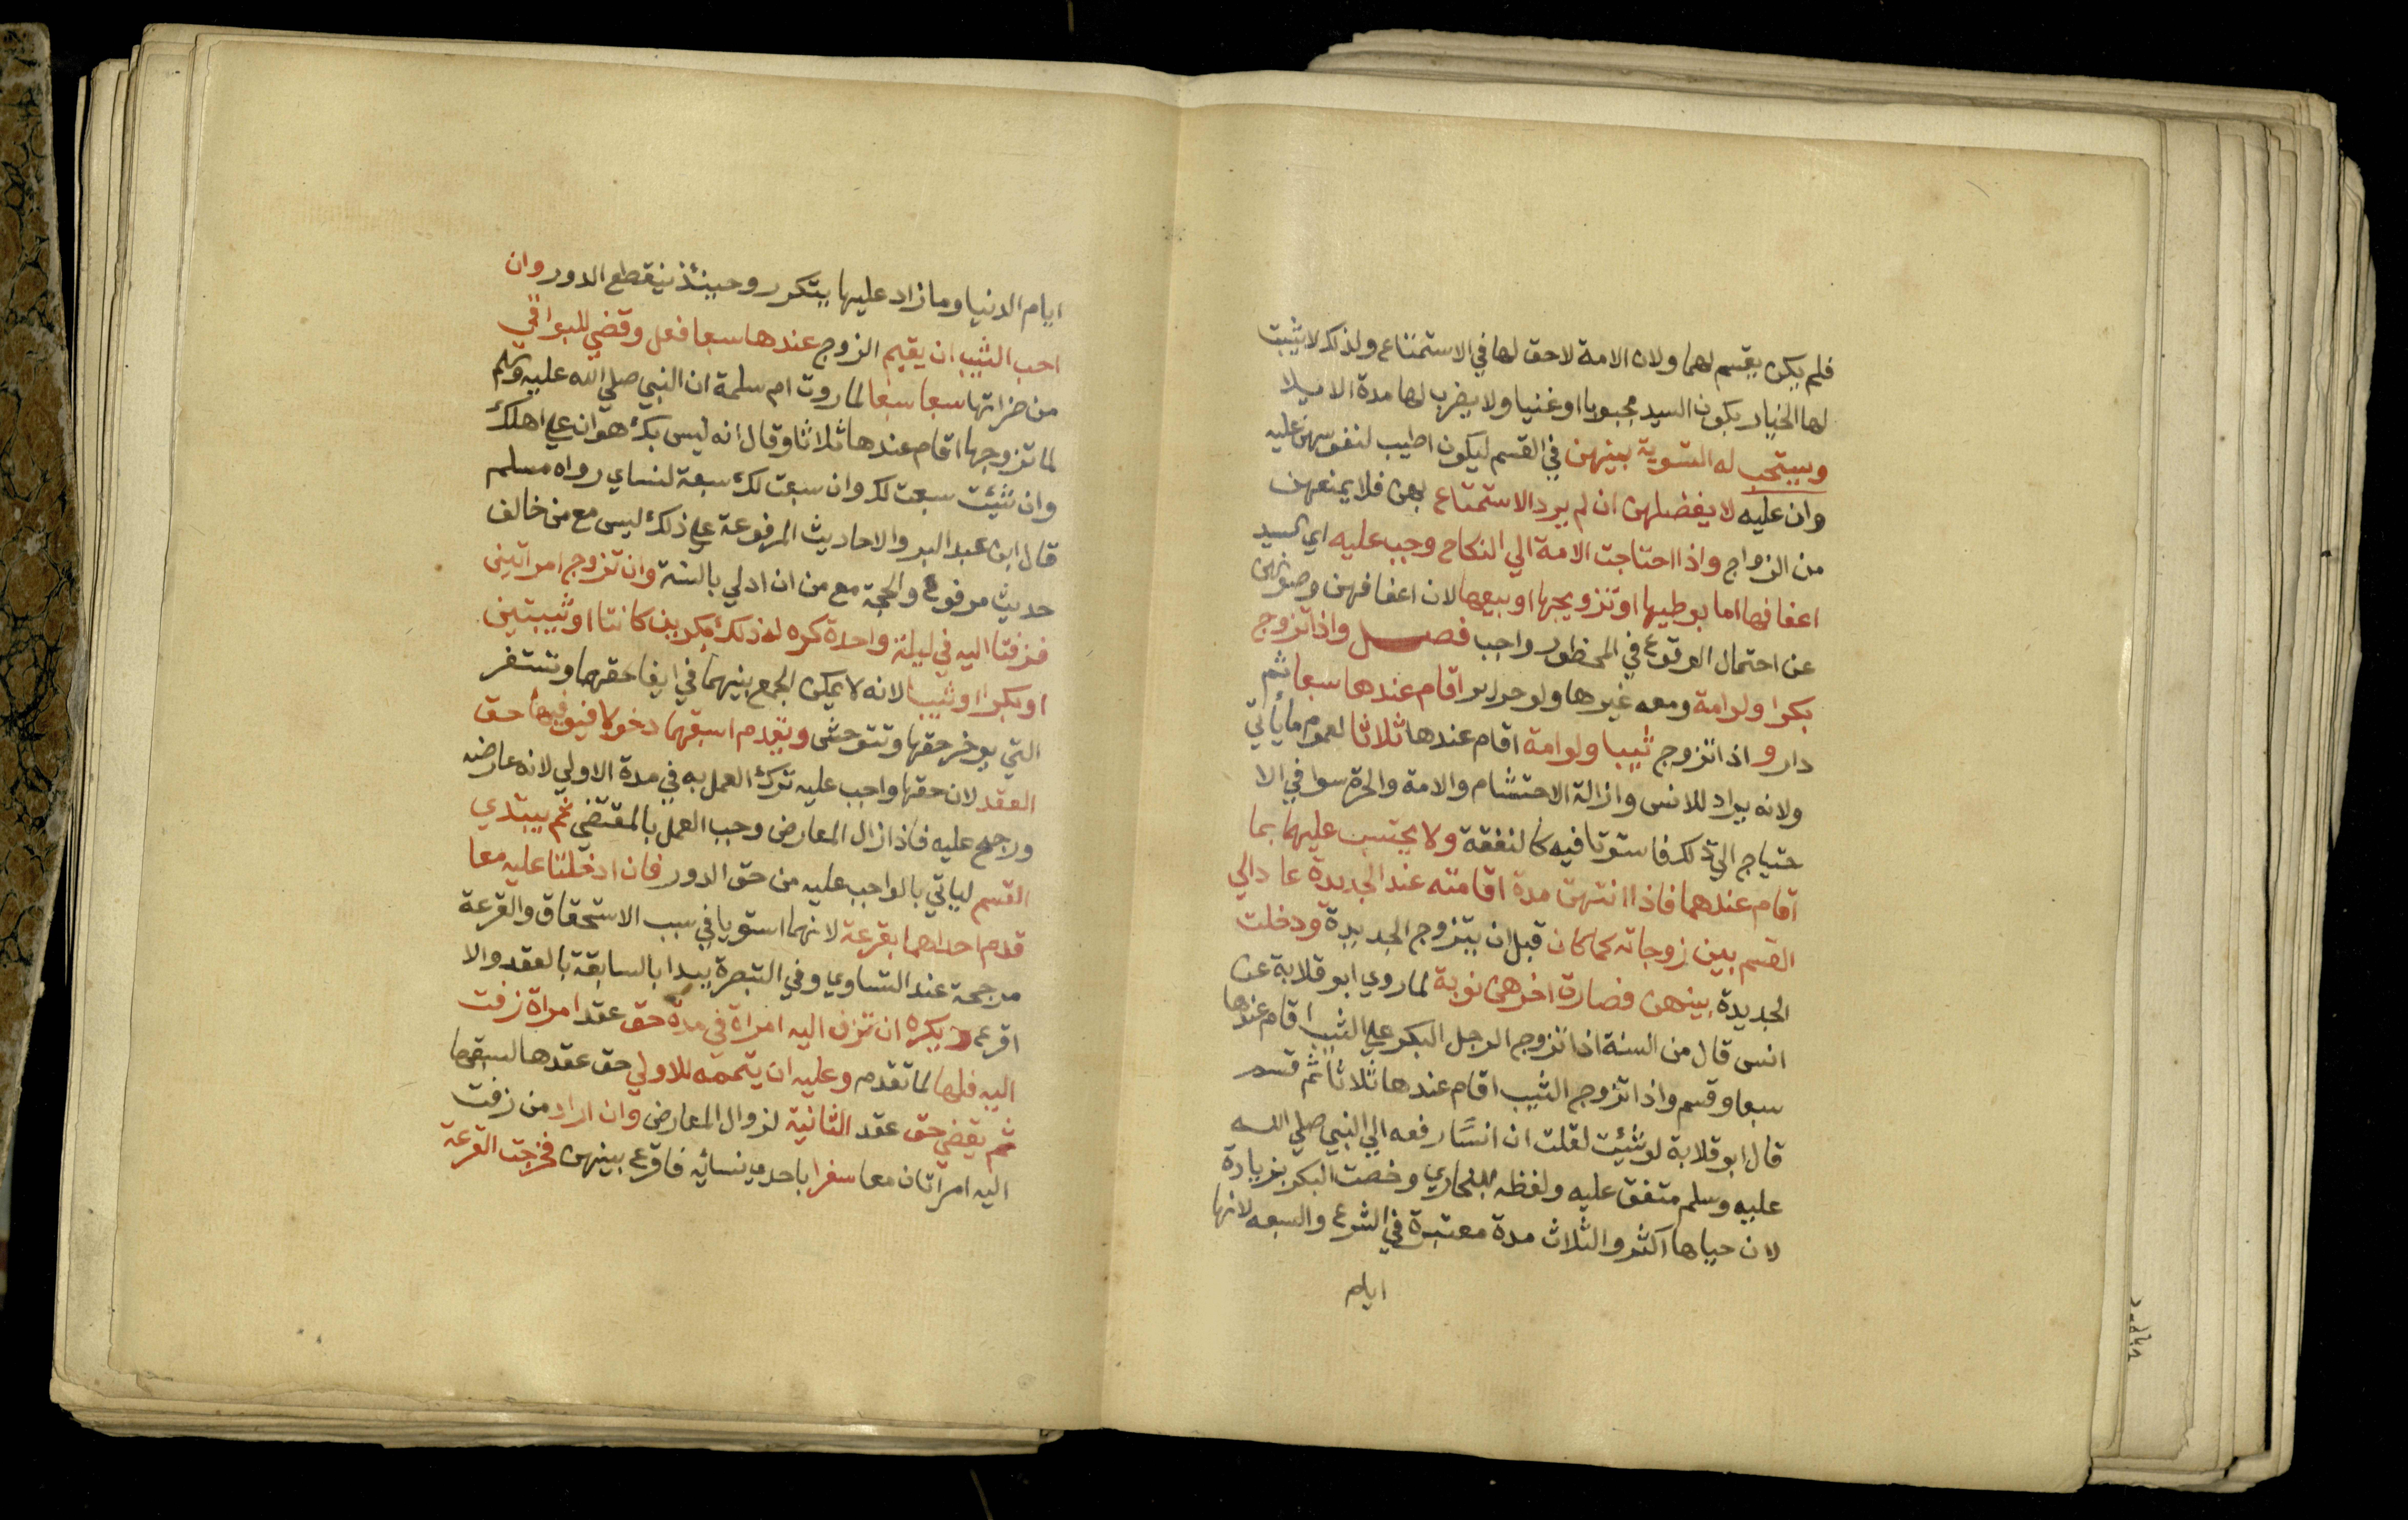 فلم يكن يقسم لهما ولان الامة لاحق لها في الاستمتاع ولذلك لا يثبت
لها الخيار بكون السيد مجبوبا او عنينا ولا يضرب لها مدة الايلا
ويستحب له التسوية بينهن في القسم ليكون اطيب لنفوسهن عليه
وان عليه لا يفضلهن ان لم يرد الاستمتاع بهن فلا يمنعهن
من الزواج واذا احتاجت الامة الي النكاح وجب عليه اي السيد
اعفافها اما بوطيها او تزويجها او بيعها لان اعفافهن وصونهن
عن احتمال الوقوع في المحظور واجب فصل واذا تزوج
بكرا ولو امة ومعه غيرها ولو حراير اقام عندها سبعا ثم
دار واذا تزوج ثيبا ولو امة اقام عندها ثلاثا لعموم ما ياتي
ولانه يراد للانس وازالة الاحتشام والامة والحرة سوا في الا
حتياج الي ذلك فاستوتا فيه كالنفقة ولا يحتسب عليهما بما
اقام عندهما فاذا انتهت مدة اقامته عند الجديدة عاد الي
القسم بين زوجاته كما كان قبل ان يتزوج الجديدة ودخلت
الجديدة بينهن فصارة اخرهن نوبة لما روي ابو قلابة عن
انس قال من السنة اذا تزوج الرجل البكر علي الثيب اقام عندها
سبعا وقسم واذا تزوج الثيب اقام عندها ثلاثا ثم قسم
قال ابو قلابة لو شئت لقلت ان انسًا رفعه الي النبي صلي الله
عليه وسلم متفق عليه ولفظه للبخاري وخصت البكر بزيادة
لان حياها اكثر والثلاث مدة معتبرة في الشرع والسبعه لانها
ايام
ايام الدنيا وما زاد عليها يتكرر وحينئذ ينقطع الدور وان
احب الثيب ان يقيم الزوج عندها سبعا فعل وقضي للبواقي
من ضراتها سبعا سبعا لما روت ام سلمة ان النبي صلي الله عليه وسلم
لما تزوجها اقام عندها ثلاثا وقال انه ليس بك هوان علي اهلك
وان شئت سبعت لك وان سبعت لك سبعة لنساي رواه مسلم
قال ابن عبد البر والاحاديث المرفوعة علي ذلك ليس مع من خالف
حديث مرفوع والحجة مع من ان ادلي بالسنة وان تزوج امراتين
فزفتا اليه في ليلة واحدة كره له ذلك بكرين كانتا او ثيبتين
او بكرا او ثيبا لانه لا يمكن الجمع بينهما في ايفا حقهما وتستضر
التي يوخر حقها وتتوحش ويقدم اسبقهما دخولا فيوفيها حق
العقد لان حقها واجب عليه ترك العمل به في مدة الاولي لانه عارضه
ورجح عليه فاذا زال المعارض وجب العمل بالمقتضي ثم يبتدي
القسم لياتي بالواجب عليه من حق الدور فان ادخلتا عليه معا
قدم احداهما بقرعة لانهما استويا في سبب الاستحقاق والقرعة
مرجحة عند التساوي وفي التبصرة يبدا بالسابقة بالعقد والا
اقرع ويكره ان تزف اليه امراة في مدة حق عقد امراة زفت
اليه قبلها لما تقدم وعليه ان يتممه للاولي حق عقدها لسبقها
ثم يقضي حق عقد الثانية لزوال المعارض وان اراد من زفت
اليه امراتان معا سفرا باحدي نسائه فاقرع بينهن فخرجت القرعة